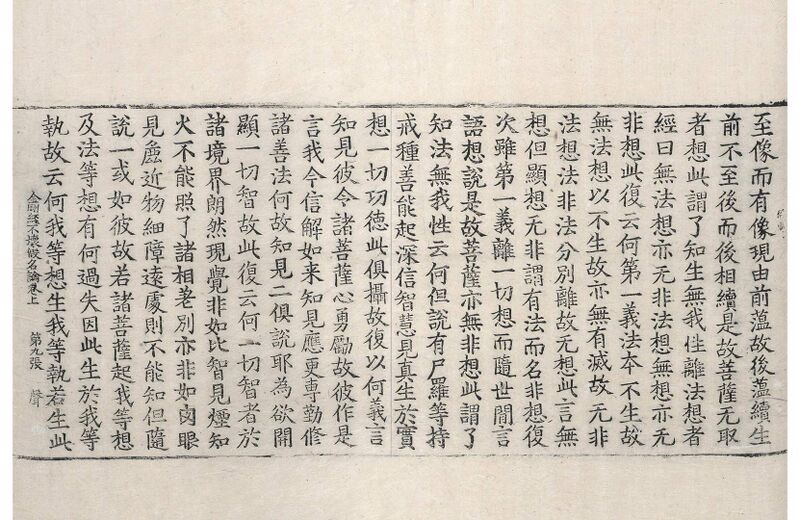 至像而有像現由前薀故後薀續生
前不至後而後相續是故菩薩无取
者想此謂了知生無我性離法想者
經曰無法想亦无非法想無想亦无
非想此復云何第一義法本不生故
無法想以不生故亦無有滅故无非
法想法非法分別離故无想此言無
想但顯想无非謂有法而名非想復
次雖第一義離一切想而隨世間言
語想說是故菩薩亦無非想此謂了
知法無我性云何但說有尸羅等持
戒種善能起深信智慧見真生於實
想一切功德此俱攝故復以何義言
知見彼令諸菩薩心勇勵故彼作是
言我今信解如来知見應更專勤修
諸善法何故知見二俱說耶為欲開
顯一切智故此復云何一切智者於
諸境界朗然現覺非如比智見煙知
火不能照了諸相差別亦非如肉眼
見麁近物細障遠處則不能知但隨
說一或如彼故若諸菩薩起我等想
及法等想有何過失因此生於我等
執故云何我等想生我等執若生此
金剛經不壞假名論卷上 第九張 聲